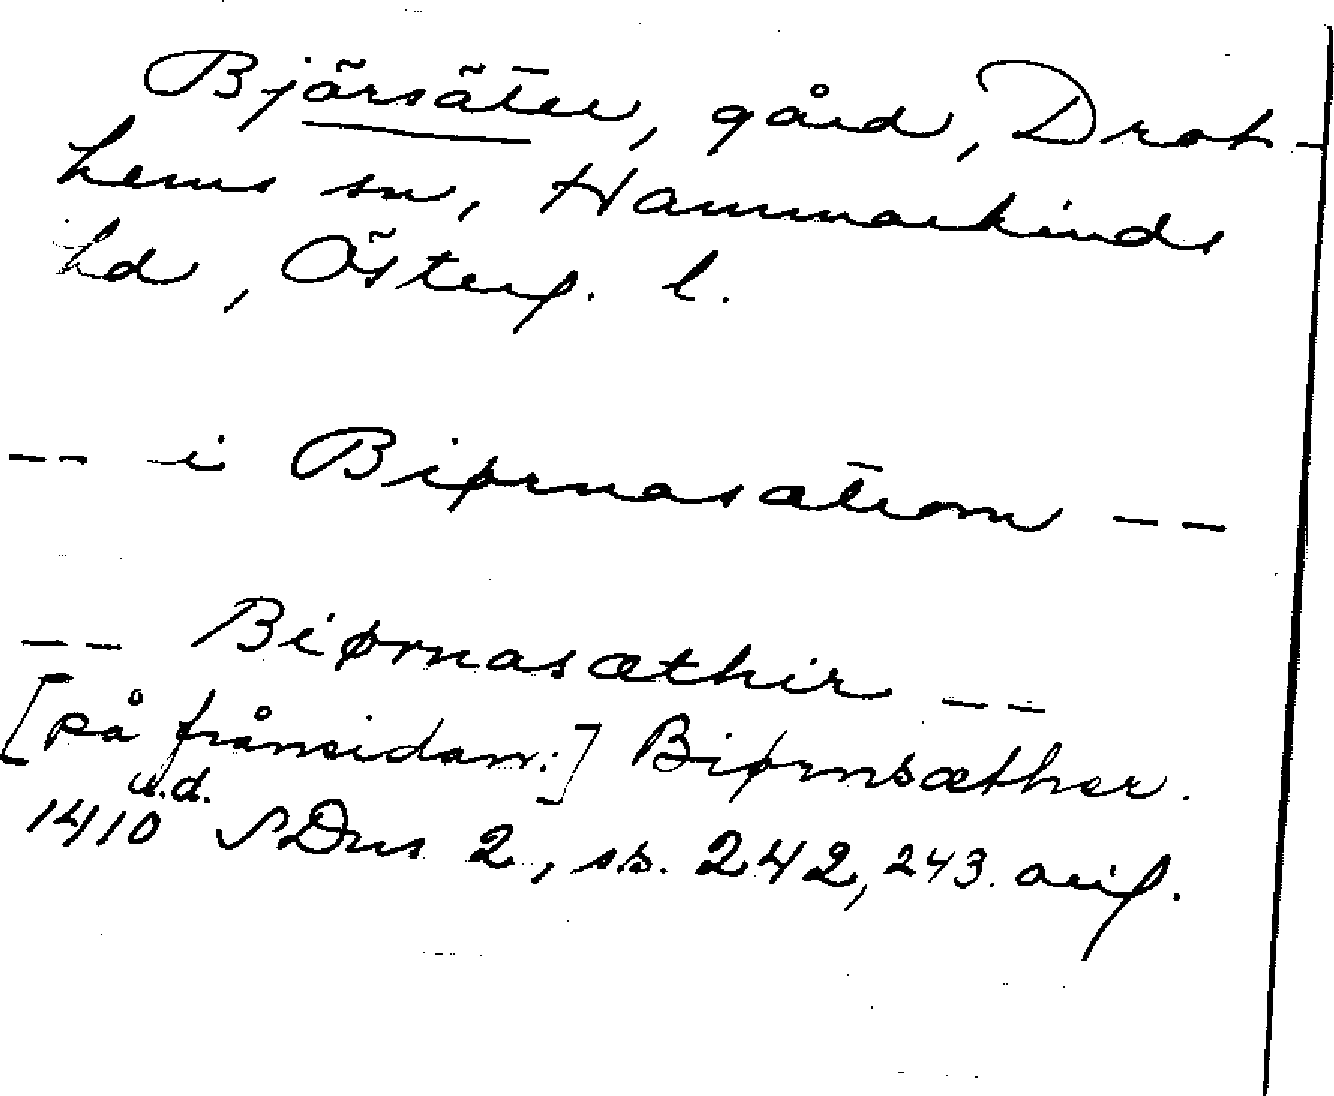 Björsäter, gård, Drot-
hems sn, Hammarkinds
hd, Österg. l.
-- i Biørnasätrom --
-- Biørnasæthir --
[på frånsidan:] Biørnsæther.
u.d.
1410 SDns 2, ss. 242, 243. avig.